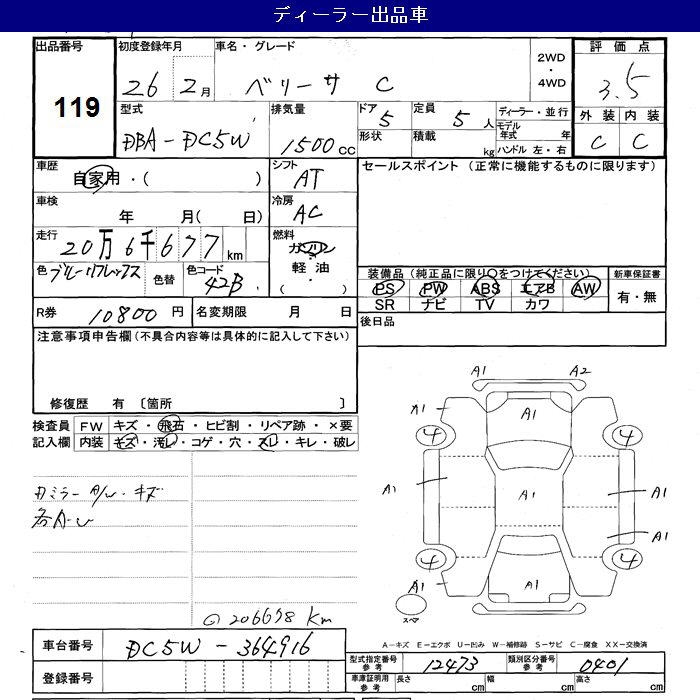 ディーラー出品車
出品番号 119
初度登録年月 26 2月
車名・グレード ベリーサ C
2WD ・ 4WD
評価点 3.5
外装 C 内装 C
型式 DBA-DC5W
排気量 1500 CC
ドア 5 形状
定員 5 人 積載 kg
ディーラー・並行
モデル年式 年
ハンドル 左・右
車歴 自家用・( )
シフト AT
セールスポイント (正常に機能するものに限ります)
車検 年 月( 日)
冷房 AC
走行 20万6千677 km
燃料 ガソリン ・ 軽油 ・ ( )
色 ブルーリフレックス 色替 色コード 42B
装備品 (純正品に限り○をつけてください)
PS PW ABS エアB AW
SR ナビ TV カワ
新車保証書 有・無
R券 10800 円
名変期限 月 日
後日品
注意事項申告欄(不具合内容等は具体的に記入して下さい)
修復歴 有 〔箇所 〕
検査員記入欄
FW キズ・飛石・ヒビ割・リペア跡・×要
内装 キズ・汚レ・コゲ・穴・スレ・キレ・破レ
A1 A2
A1 A1
4 4
A1 A1 A1
A1
4 4
A1 A1 A1
スペア
各A・U
206678 Km
車台番号 DC5W-364916
登録番号
A-キズ E-エクボ U-凹み W-補修跡 S-サビ C-腐食 XX-交換済
型式指定番号 参考 12473
類別区分番号 参考 0401
車庫証明用 参考 長さ cm 幅 cm 高さ cm